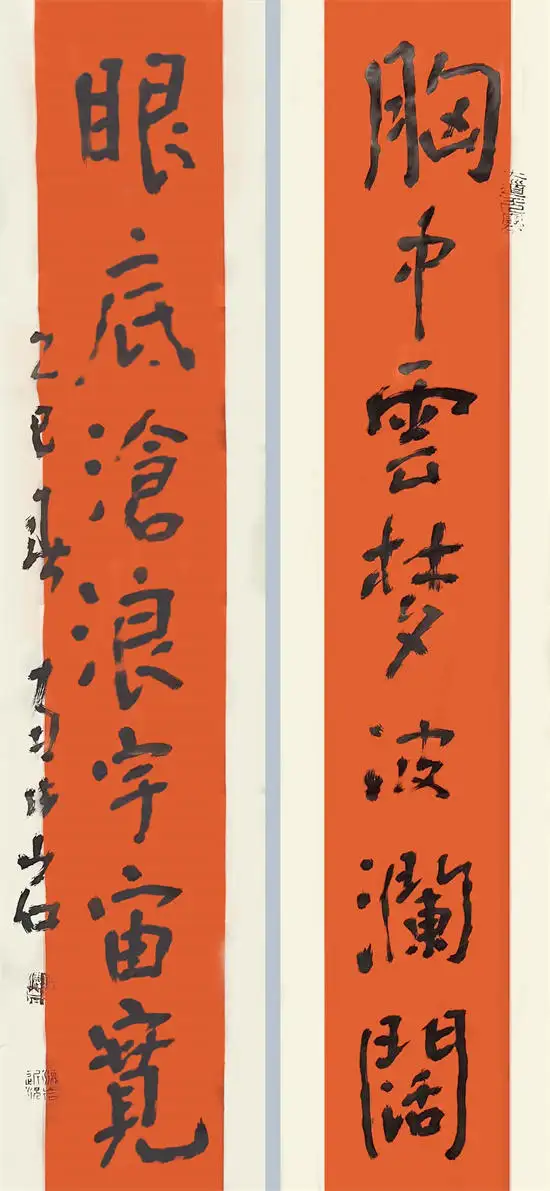 胸中雲梦波瀾闊
眼底滄浪宇宙寛
乙巳春